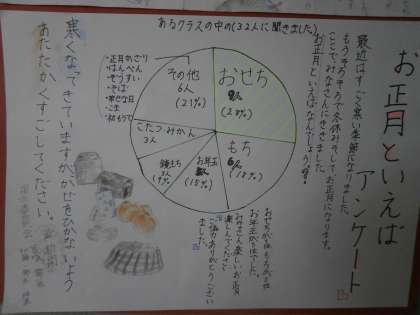 お正月といえば
アンケート
最近はすごく寒い季節になりました。
もうその年で冬休み。そしてお正月になります。
ここで、みなさんにききました。
お正月といえばなんでしょうか?
あるクラスの中の(32人に聞きました)
おせち
(28%)
もち
6人
(18%)
お年玉
(18%)
鏡もち
3人
(9%)
こたつ・みかん
3人
その他
6人
(21%)
・正月かざり
・はんぺん
・ぞうすい
・そば
・幸せな日
・こま
・初もうで
お年玉が3位でした。
みなさん楽しいお正月
楽しんでください。
ご協力ありがとうござい
ました。
寒くなってきていますが、かぜをひかないよう
あたたかくすごしてください。